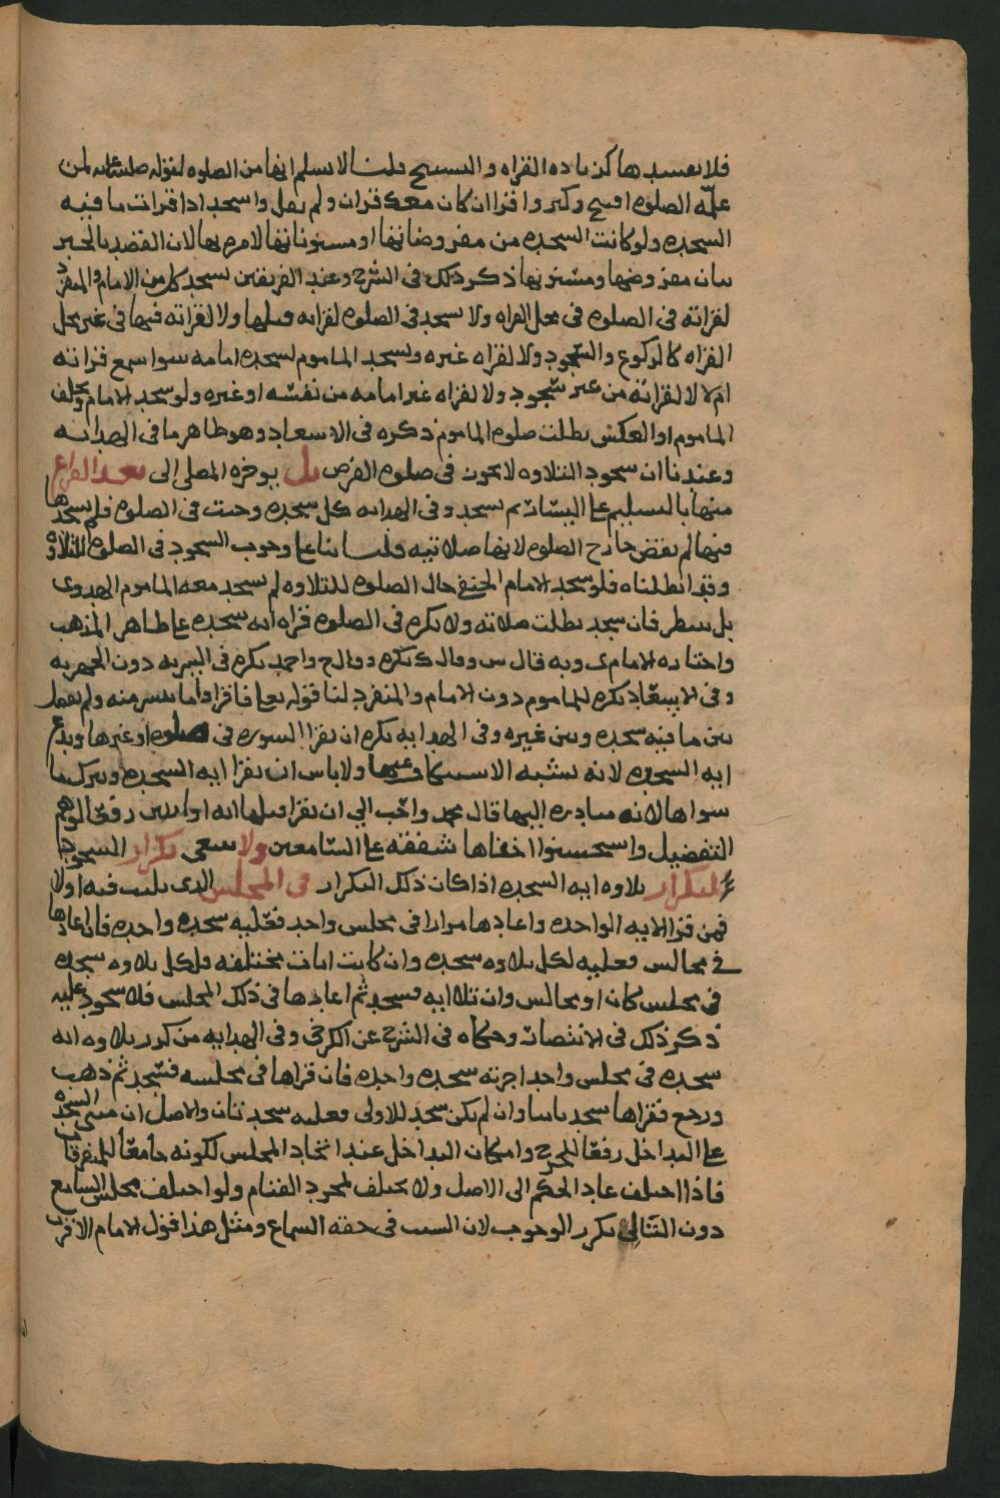 فلا يفسدها كزياده القراه والتسبيح قلنا لا نسلم انها من الصلوه لقوله صلى الله عليه لمن
علمه الصلوه افتتح وكبر واقرا ان كان معك قران ولم يقل واسجد اذا قرات ما فيه
السجده ولو كانت السجده من مفروضاتها او مسنوناتها لامره بها لان القصد بالخبر
بيان مفروضها ومسنونها ذكر ذلك في الشرح وعند الفريقين يسجد كل من الامام والمنفرد
لقراته في الصلوه في محل القراه ولا يسجد في الصلوه لقراته قبلها ولا لقراته فيها في غير محل
القراه كالركوع والسجود ولا لقراه غيره ويسجد الماموم لسجده امامه سوا سمع قراته
ام لا لا لقراته من غير سجود ولا لقراه غير امامه من نفسه او غيره ولو سجد الامام وتخلف
الماموم او العكس بطلت صلوه الماموم ذكره في الاسعاد وهو ظاهر ما في الهدايه
وعندنا ان سجود التلاوه لا يكون في صلوه الفرض بل يوخره المصلي الى بعد الفراغ
منها بالتسليم على اليسار ثم يسجد وفي الهدايه كل سجده وجبت في الصلوه فلم يسجدها
فيها لم تقض خارج الصلوه لانها صلاتيه قلنا بنا على وجوب السجود في الصلوه للتلاوه
وقد ابطلناه فلو سجد الامام الحنفي حال الصلوه للتلاوه لم يسجد معه الماموم الهدوي
بل ينتظر فان سجد بطلت صلاته ولا يكره في الصلوه قراه ايه سجده على ظاهر المذهب
واختاره الامام ى وبه قال س وقال ك يكره وقال ح واحمد يكره في السريه دون الجهريه
وفي الاسعاد يكره للماموم دون الامام والمنفرد لنا قوله تعالى فاقراوا ما تيسر منه ولم يفصل
بين ما فيه سجده وبين غيره وفي الهدايه يكره ان يقرا السوره في صلوه او غيرها ويدع
ايه السجده لانه يشبه الاستنكاف عنها ولا باس ان يقرا ايه السجده ويترك ما
سواها لانه مبادره اليها قال محمد واحب الي ان يقرا قبلها ايه او ايتين دفعا لوهم
التفضيل واستحسنوا اخفاها شفقه على السامعين ولا تكرار السجود
لتكرار تلاوه ايه السجده اذا كان ذلك التكرار في المجلس الذي تليت فيه اولا
فمن قرا الايه الواحده واعادها مرارا في مجلس واحد فعليه سجده واحده فان اعادها
في مجالس فعليه لكل تلاوه سجده وان كانت ايات مختلفه فلكل تلاوه سجده
في مجلس كان او مجالس وان تلا ايه فسجد ثم اعادها في ذلك المجلس فلا سجود عليه
ذكر ذلك في الانتصار وحكاه في الشرح عن الكرخي وفي الهدايه من كرر تلاوه ايه
سجده في مجلس واحد اجزته سجده واحده فان قراها في مجلسه فسجد ثم ذهب
ورجع فقراها سجد ثانيا وان لم يكن سجد للاولى فعليه سجدتان والاصل ان مبنى السجده
على التداخل رفعا للحرج وامكان التداخل عند اتحاد المجلس لكونه جامعا للمتفرقات
فاذا اختلف عاد الحكم الى الاصل ولا يختلف بمجرد القيام ولو اختلف مجلس السامع
دون التالي تكرر الوجوب لان السبب في حقه السماع ومثل هذا قول الامام الا في